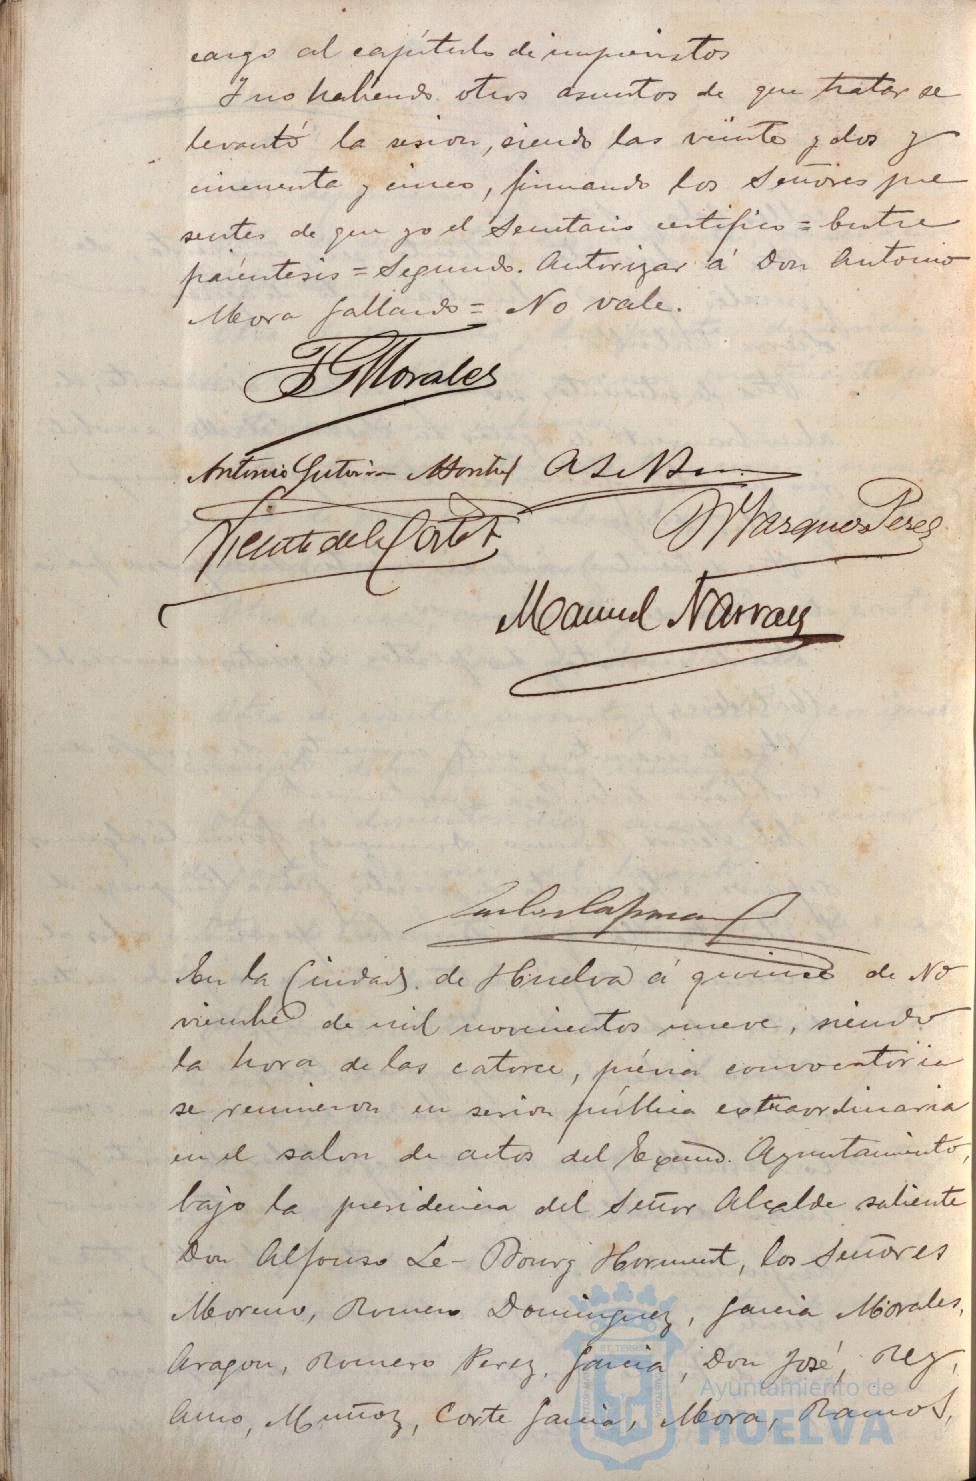 cargo al capítulo de imprevistos
Y no habiendo otros asuntos de que tratar se
levantó la sesion, siendo las veinte y dos y
cincuenta y cinco, firmando los Señores pre
sentes de que yo el Secretario certifico = Entre
paréntesis = Segundo. Autorizar á Don Antonio
Mora Gallardo = No vale.
F G Morales
Antonio Gutierrez Montiel
Vicente de la Corte
Vazquez Perez
Manuel Narvaez
En la Ciudad de Huelva á quince de No
viembre de mil novecientos nueve, siendo
la hora de las catorce, prévia convocatoria
se reunieron en sesion pública extraordinaria
en el salon de actos del Excmo. Ayuntamiento,
bajo la presidencia del Señor Alcalde saliente
Don Alfonso Le-Bourg Norment, los Señores
Moreno, Romero Dominguez, Garcia Morales,
Aragon, Romero Perez, Garcia, Don José, Rey,
Amo, Muñoz, Corte Garcia, Mora, Ramos,
Ayuntamiento de
HUELVA